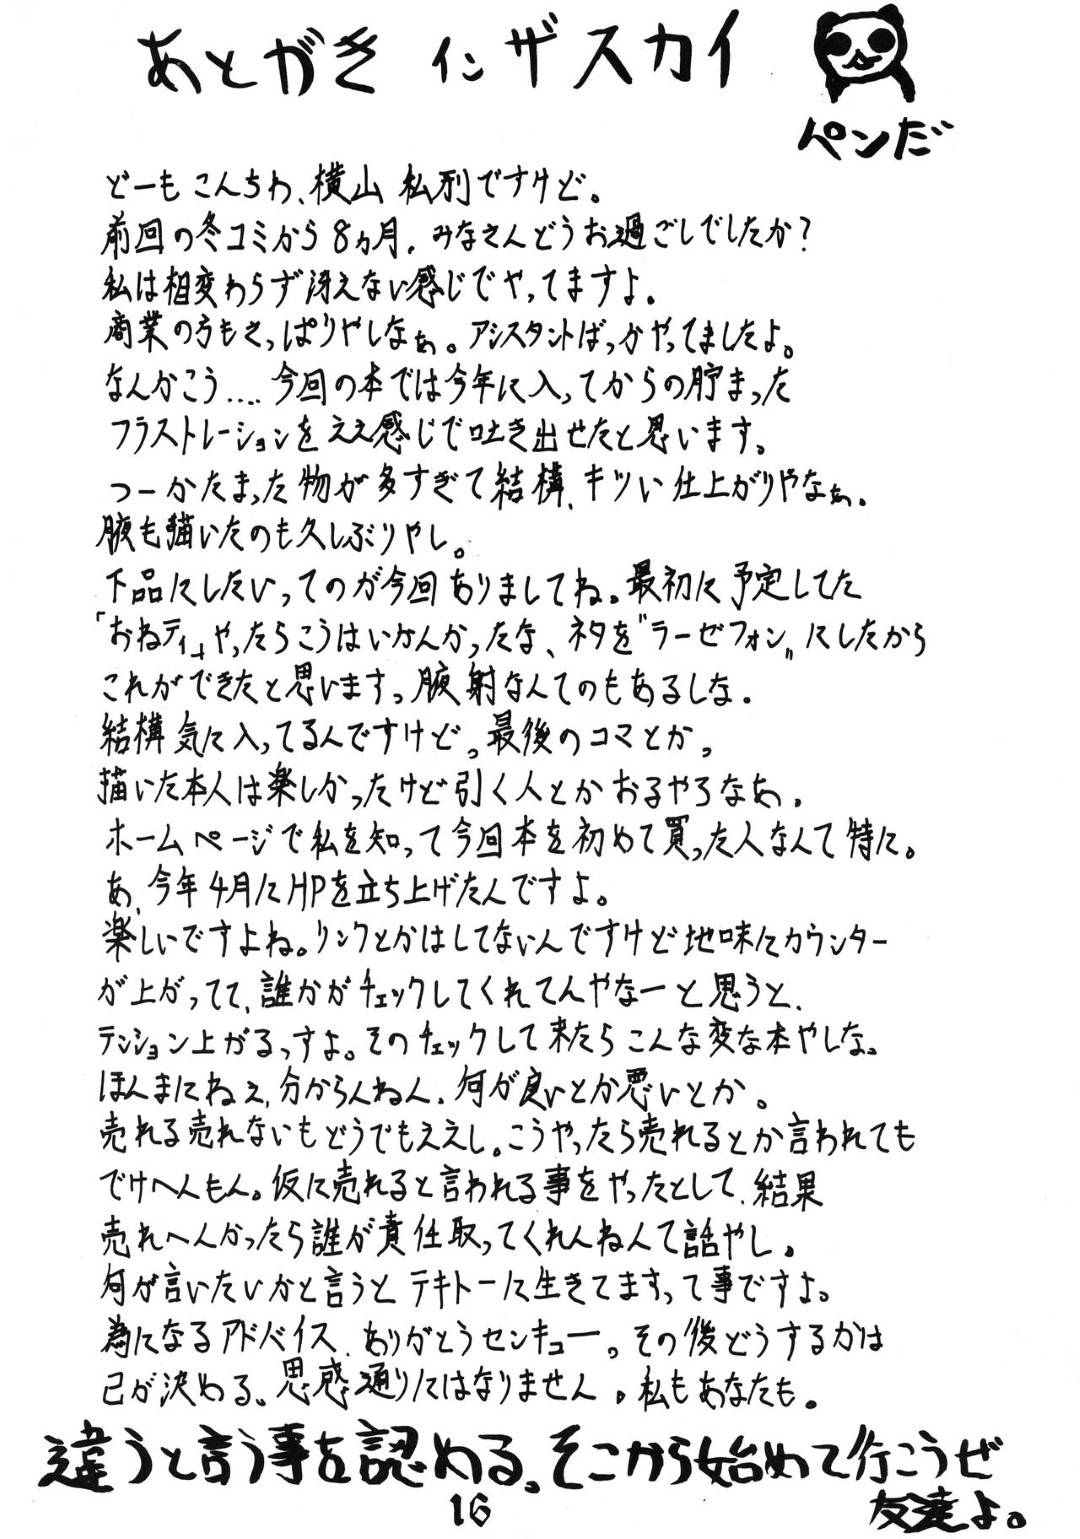 あとがき インザスカイ
ペンだ
どーもこんちわ、横山私刑ですけど。
前回の冬コミから8ヵ月、みなさんどうお過ごしでしたか?
私は相変わらず冴えない感じでやってますよ。
商業の方もさっぱりやしなぁ。アシスタントばっかやってましたよ。
なんかこう‥‥今回の本では今年に入ってからの貯まった
フラストレーションをええ感じで吐き出せたと思います。
つーかたまった物が多すぎて結構、キツい仕上がりやなぁ。
腋も描いたのも久しぶりやし。
下品にしたいってのが今回ありましてね。最初に予定してた
「おねティ」やったらこうはいかんかったな、ネタを"ラーゼフォン"にしたから
これができたと思います。腋射なんてのもあるしな。
結構気に入ってるんですけど。最後のコマとか。
描いた本人は楽しかったけど引く人とかおるやろなあ。
ホームページで私を知って今回本を初めて買った人なんて特に。
あ、今年4月にHPを立ち上げたんですよ。
楽しいですよね。リンクとかはしてないんですけど地味にカウンター
が上がってて、誰かがチェックしてくれてんやなーと思うと、
テンション上がるっすよ。そのチェックして来たらこんな変な本やしな。
ほんまにねぇ、分からんねん、何が良いとか悪いとか。
売れる売れないもどうでもええし。こうやったら売れるとか言われても
でけへんもん。仮に売れると言われる事をやったとして、結果
売れへんかったら誰が責任取ってくれんねんて話やし。
何が言いたいかと言うとテキトーに生きてますって事ですよ。
為になるアドバイス、ありがとうセンキュー。その後どうするかは
己が決める。思惑通りにはなりません。私もあなたも。
違うと言う事を認める。そこから始めて行こうぜ
友達よ。
16